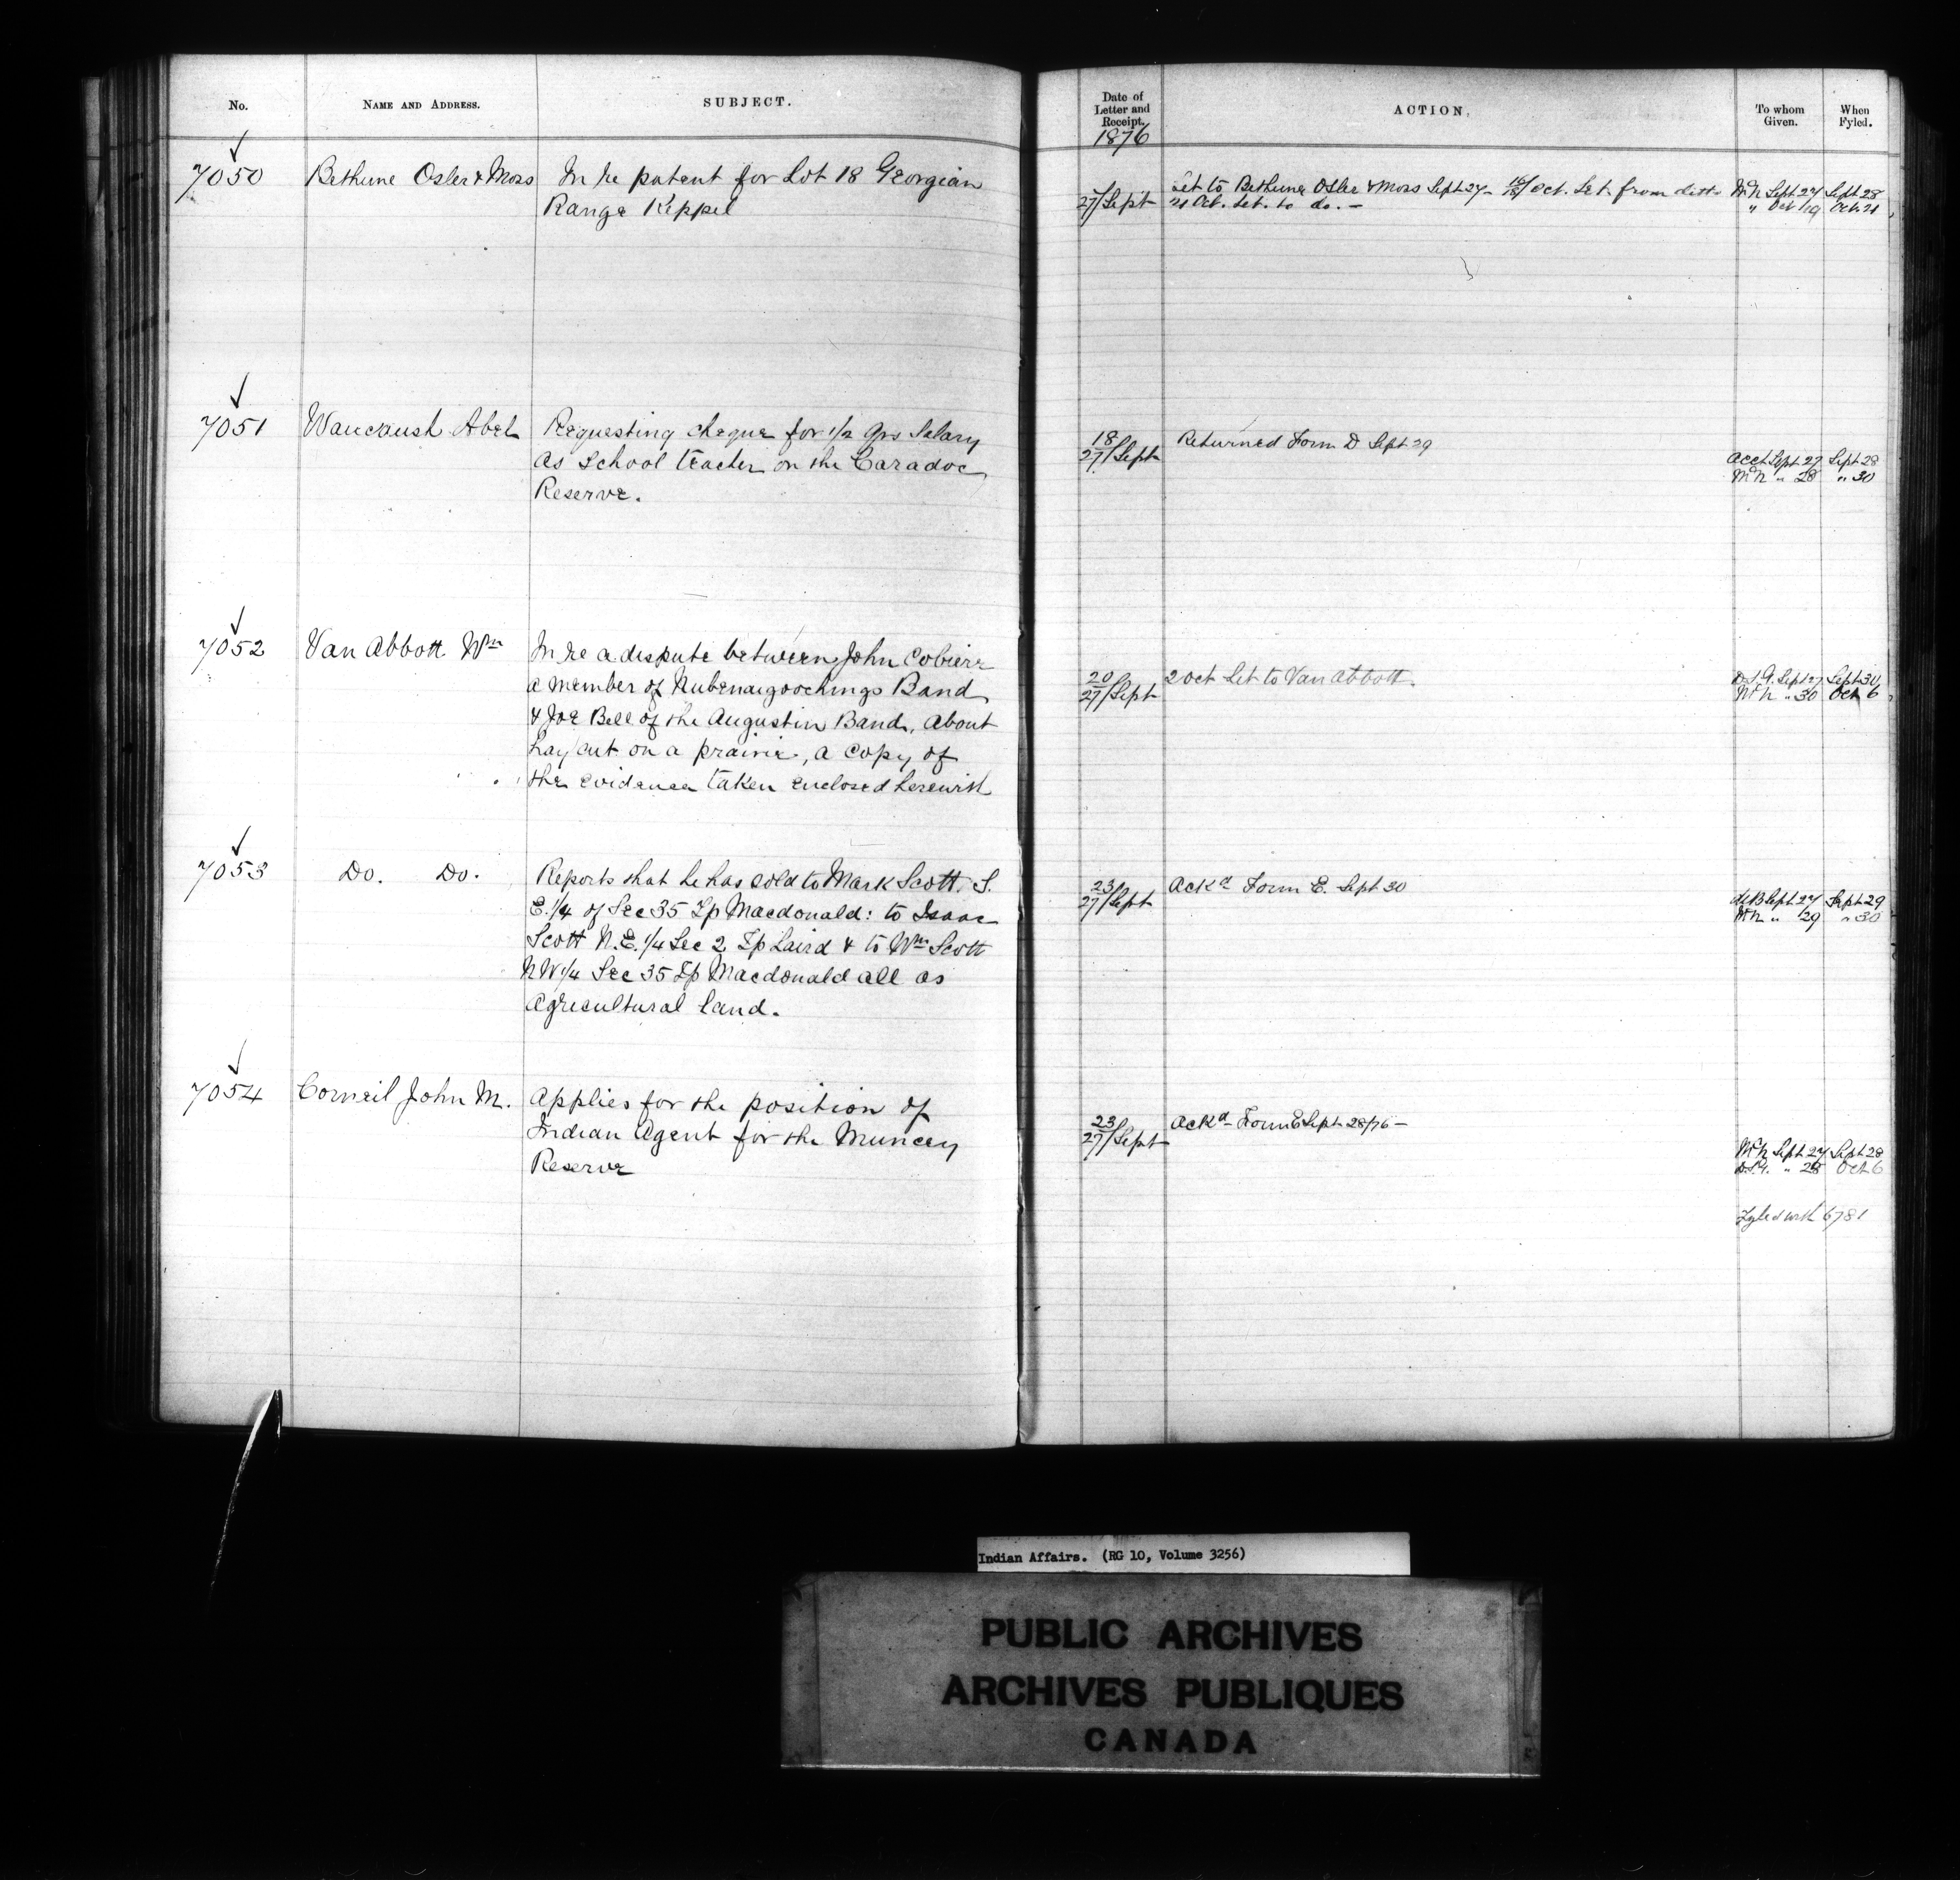 No.
NAME AND ADDRESS.
SUBJECT.
Date of
Letter and
Receipt.
ACTION.
To whom
Given.
When
Fyled.
1876
7050
Bethune Osler & Moss
In re patent for Lot 18 Georgian
Range Keppel
27/Sept
Let to Bethune Osler & Moss Sept 27 – 16/18 Oct. Let. from ditto
21 Oct. Let. to do. –
Sept 27 Sept 28
" Oct 19 Oct. 21
7051
Waucaush Abel
Requesting cheque for 1/2 yrs Salary
as School teacher on the Caradoc
Reserve.
18
27/Sept
Returned Form D Sept 29
Acct Sept 27 Sept 28
" 28 " 30
7052
Van Abbott Wm
In re a dispute between John Cobiere
a member of Nubenaigoochings Band
& Joe Bell of the Augustin Band, about
hay cut on a prairie, a copy of
the evidence taken enclosed herewith
20
27/Sept
2 Oct Let to Van Abbott.
Sept 27 Sept 30
" 30 Oct 6
7053
Do. Do.
Reports that he has sold to Mark Scott. S.
E. 1/4 of Sec 35 Tp Macdonald: to Isaac
Scott N.E. 1/4 Sec 2 Tp Laird & to Wm Scott
NW 1/4 Sec 35 Tp Macdonald all as
Agricultural land.
23
27/Sept
Ackd Form E. Sept 30
Sept 27 Sept 29
" 29 " 30
7054
Corneil John M.
Applies for the position of
Indian Agent for the Muncey
Reserve
23
27/Sept
Ackd – Form E Sept 28/76 –
Sept 27 Sept 28
" 28 Oct 6
Fyled with 6781
Indian Affairs. (RG 10, Volume 3256)
PUBLIC ARCHIVES
ARCHIVES PUBLIQUES
CANADA